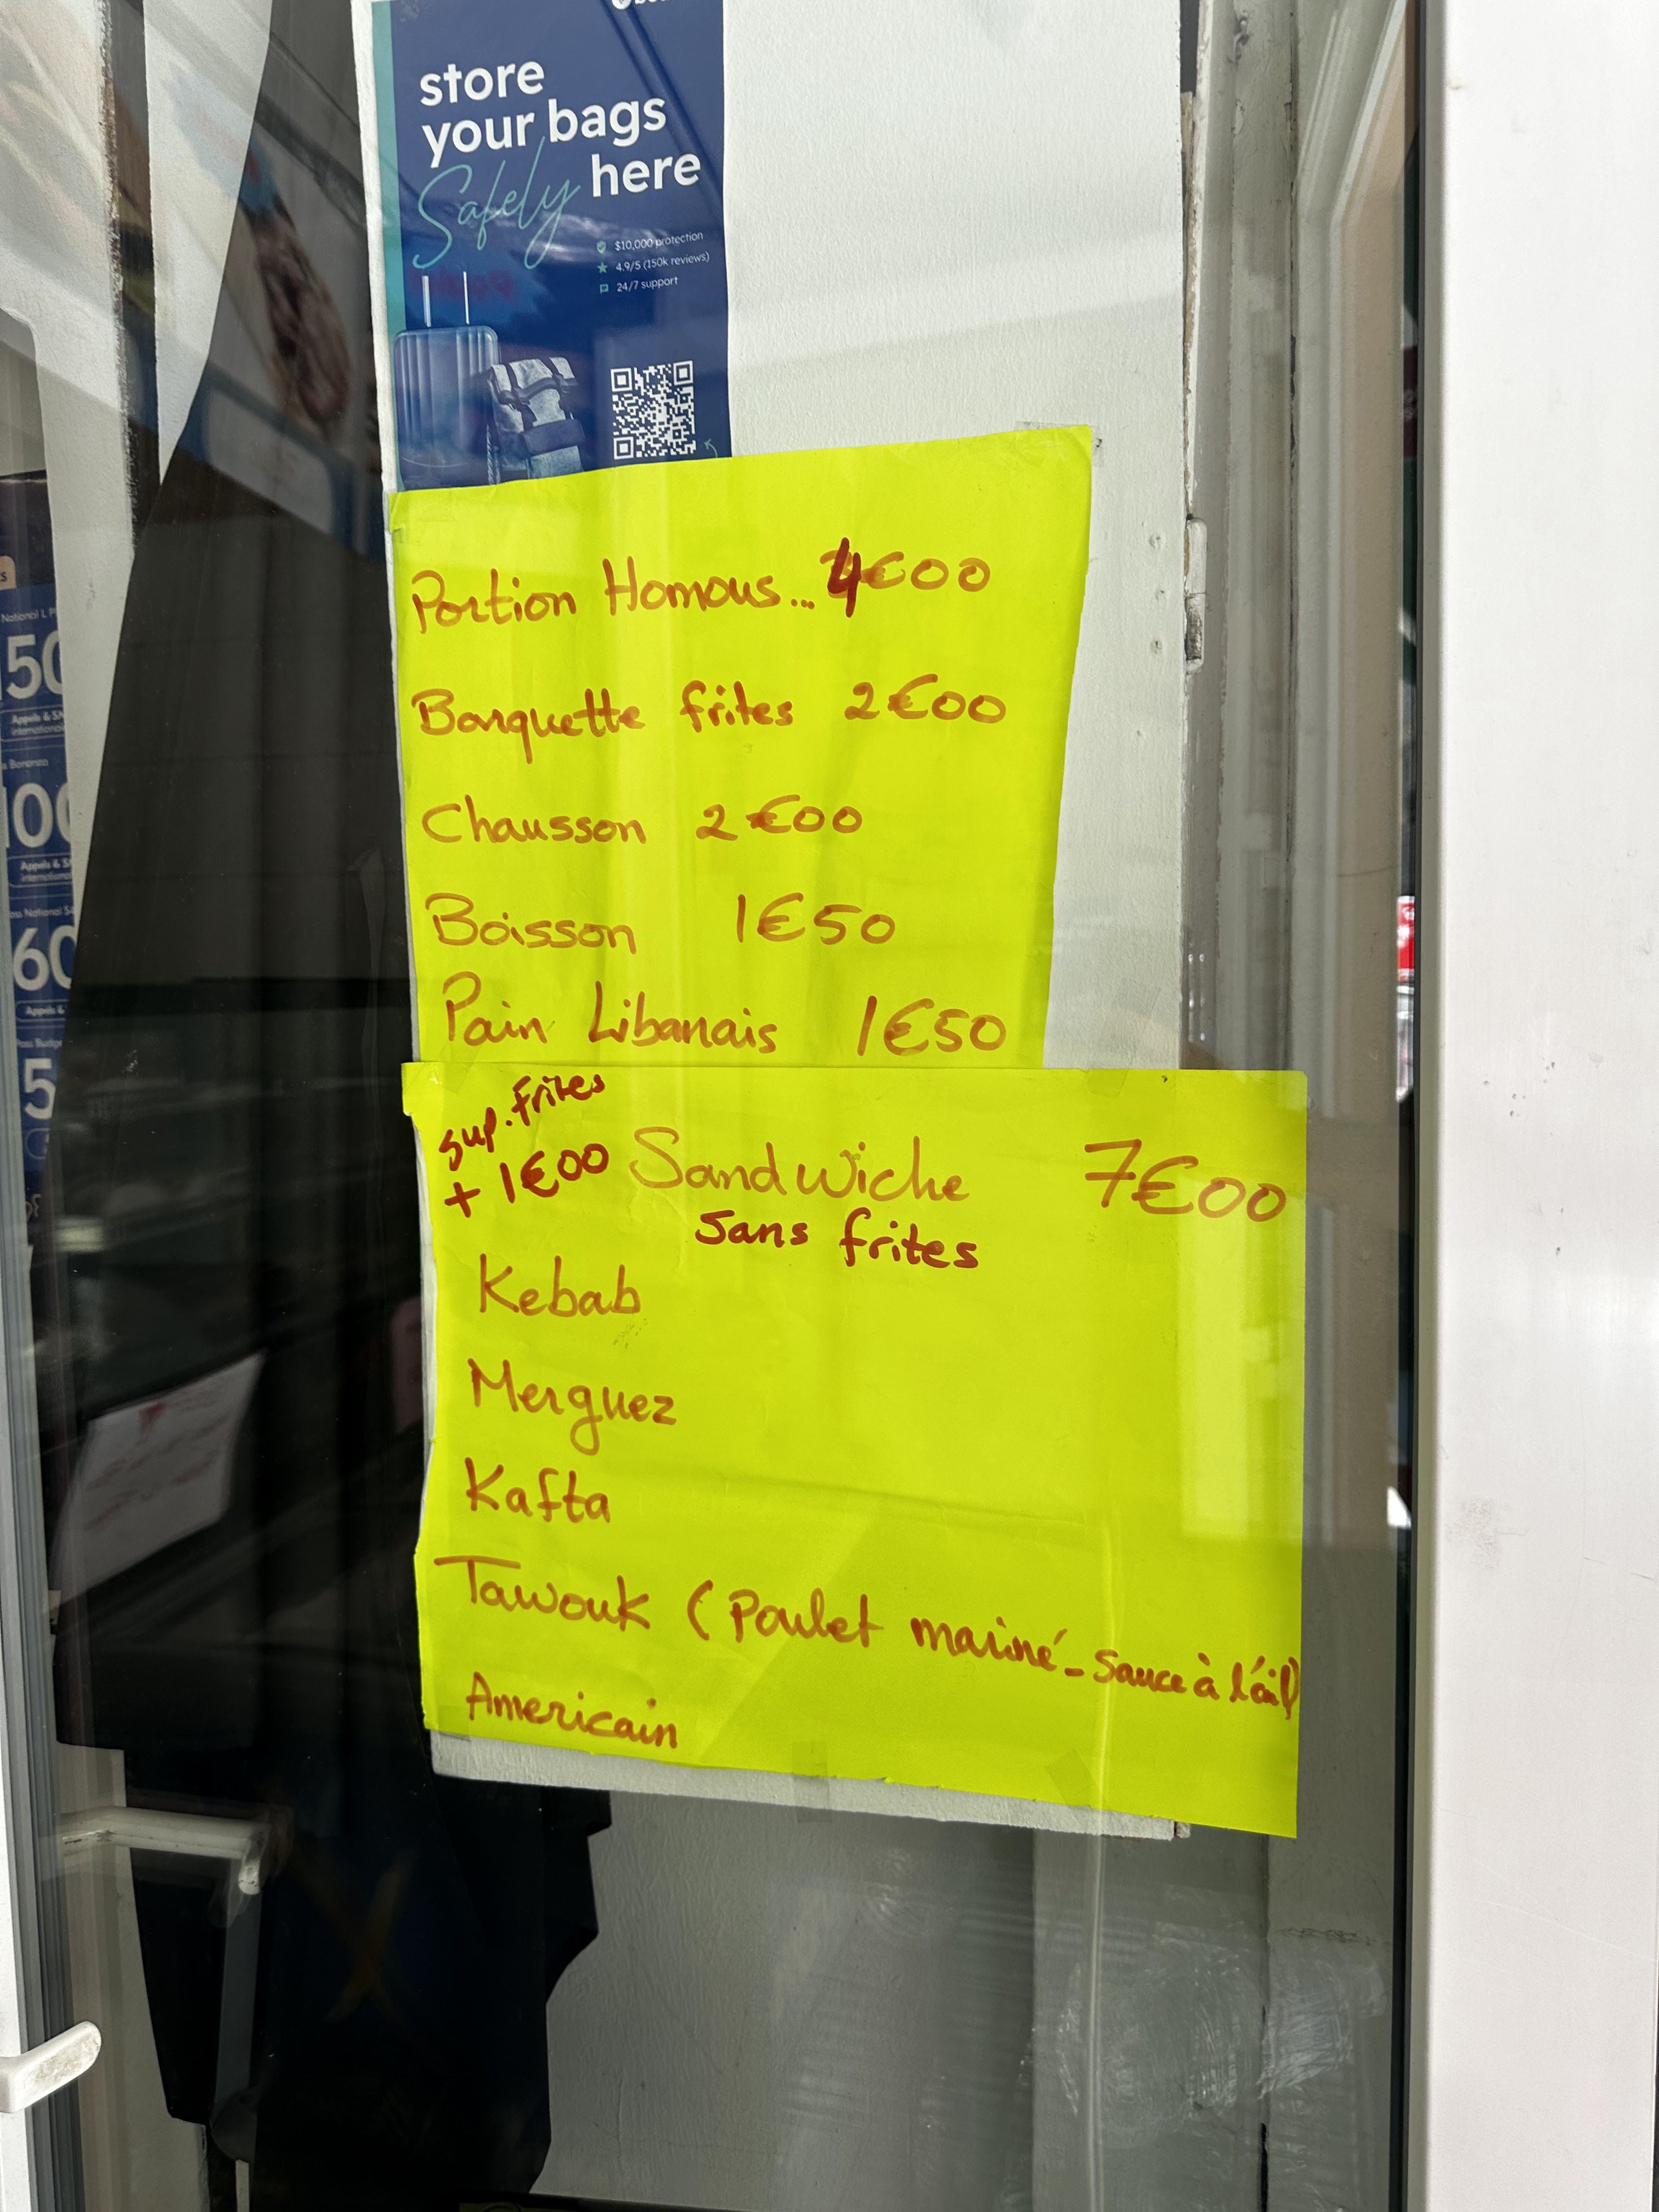 store
your bags
Safely here
$10,000 protection
4.9/5 (150k reviews)
24/7 support
Portion Homous... 4€00
Barquette frites 2€00
Chausson 2€00
Boisson 1€50
Pain Libanais 1€50
sup. frites
+ 1€00
Sandwiche 7€00
sans frites
Kebab
Merguez
Kafta
Tawouk (Poulet mariné - sauce à l'ail)
Americain
National
50
Appels &
Bonanza
00
Appels &
National
60
Appels &
5